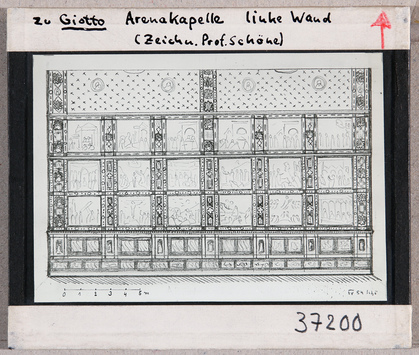 zu Giotto Arenakapelle linke Wand
(Zeichn. Prof. Schöne)
0 1 2 3 4 5m
37200